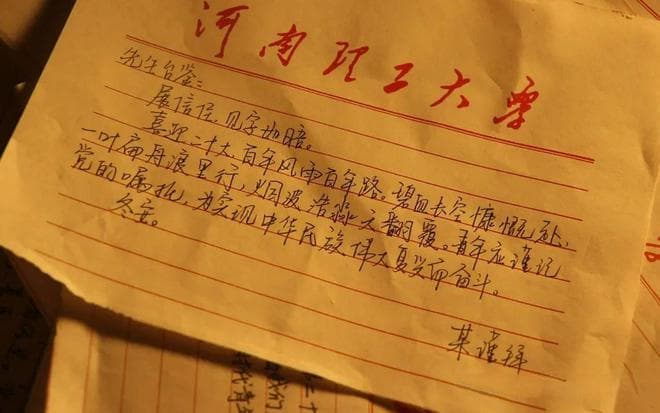 河南理工大学
先生台鉴：
展信佳，见字如晤。
喜迎二十大，百年风雨百年路。碧血长空慷慨处，
一叶扁舟浪里行，烟波浩淼天翻覆。青年应谨记
党的嘱托，为实现中华民族伟大复兴而奋斗。
冬安。
某谨拜